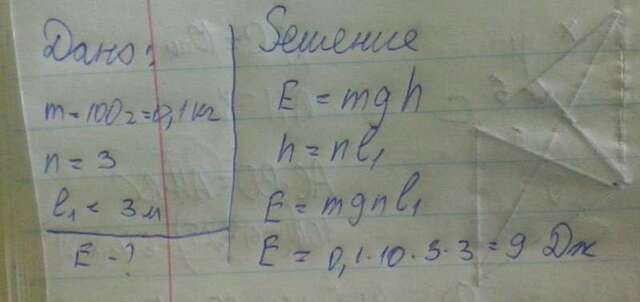 Дано:
m = 100г = 0,1 кг
n = 3
l₁ = 3 м
E - ?
Решение
E = mgh
h = nl₁
E = mgnl₁
E = 0,1·10·3·3 = 9 Дж